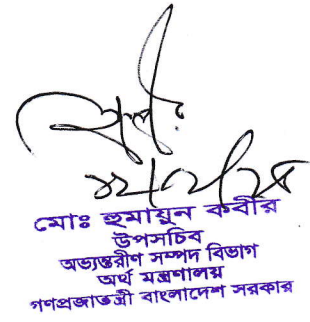 মোঃ হুমায়ুন কবীর
উপসচিব
অভ্যন্তরীণ সম্পদ বিভাগ
অর্থ মন্ত্রণালয়
গণপ্রজাতন্ত্রী বাংলাদেশ সরকার